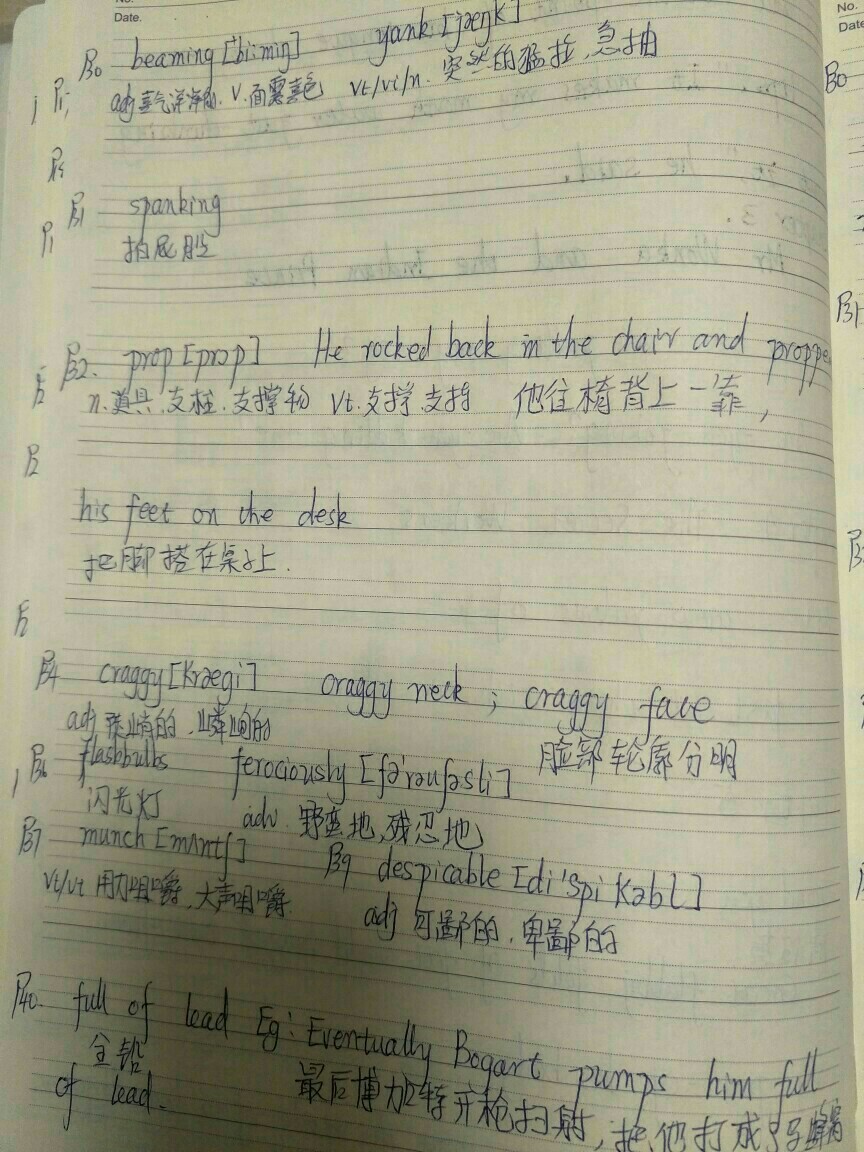 No.
Date.
P30 beaming [bi:miŋ] yank [jæŋk]
adj 喜气洋洋的. v. 面露喜色 vt/vi/n. 突然的猛拉, 急抽
P31 spanking
拍屁股
P32. prop [prop] He rocked back in the chair and proppe
n. 道具. 支柱. 支撑物 vt. 支撑. 支持 他往椅背上一靠,
his feet on the desk
把脚搭在桌子上.
P34 craggy [krægi] craggy neck ; craggy face
adj 陡峭的, 嶙峋的 脸部轮廓分明
P36 flashbulbs ferociously [fə'rəuʃəsli]
闪光灯 adv. 野蛮地, 残忍地
P37 munch [mʌntʃ] P39 despicable [di'spikəbl]
vt/vt 用力咀嚼, 大声咀嚼 adj 可鄙的, 卑鄙的
P40. full of lead Eg: Eventually Bogart pumps him full
全铅 最后博加特开枪扫射, 把他打成
of lead.
No.
Date
P30
P31